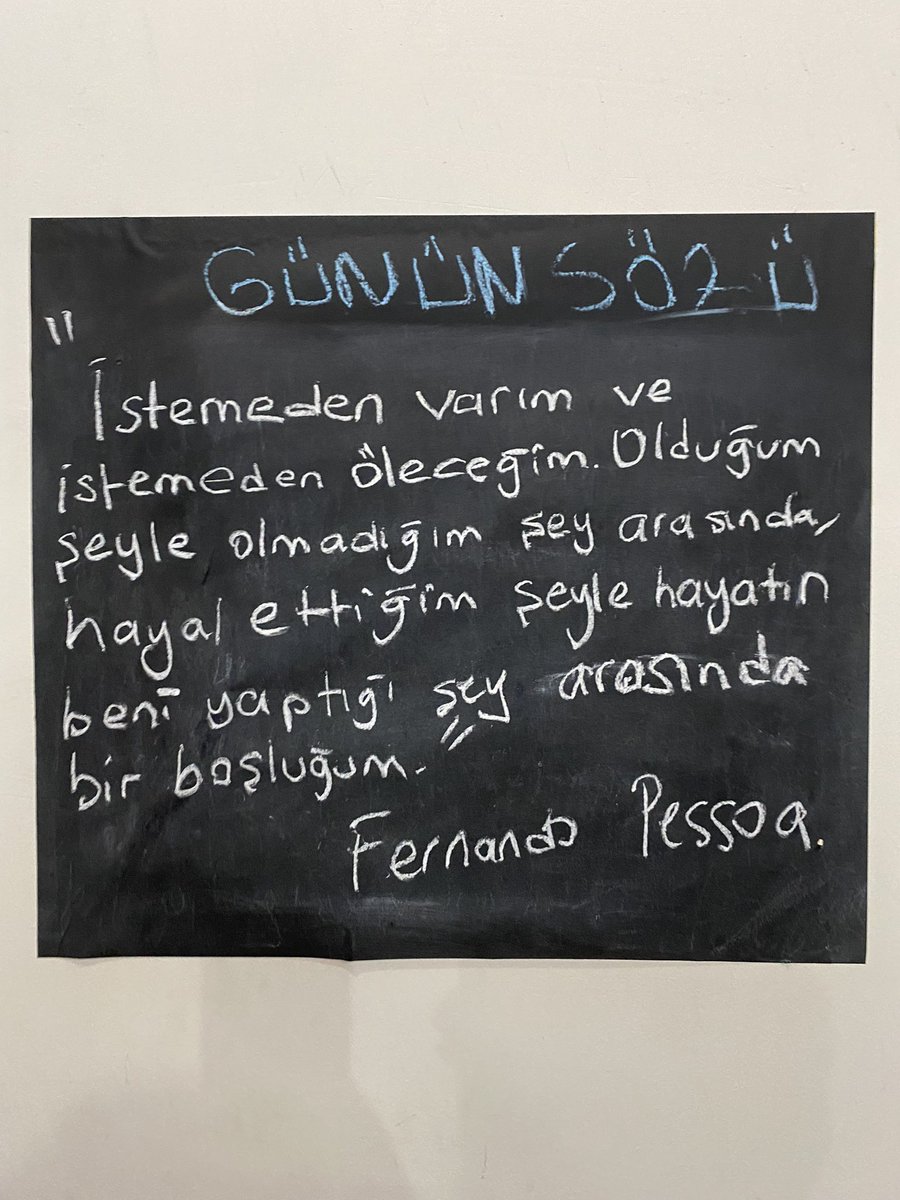 GÜNÜN SÖZÜ
"
İstemeden varım ve
istemeden öleceğim. Olduğum
şeyle olmadığım şey arasında,
hayal ettiğim şeyle hayatın
beni yaptığı şey arasında
bir boşluğum. "
Fernando Pessoa.